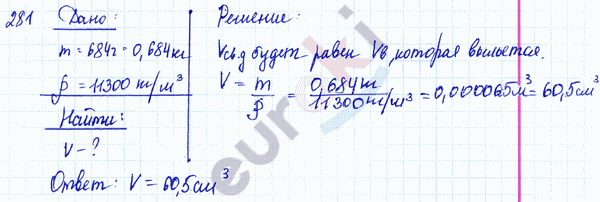 281 Дано:
m = 684г = 0,684кг
ρ = 11300 кг/м³
Найти:
V - ?
Решение:
Vсв.д будет равен Vв, которая выльется.
V = m/ρ = 0,684кг/11300кг/м³ = 0,000065м³ = 60,5см³
Ответ: V = 60,5см³
eureki